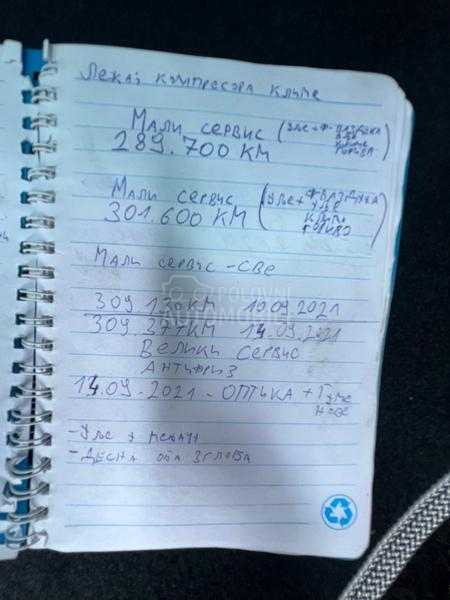 Лежај компресора климе
Мали сервис (уље + ф. ваздуха
289.700 КМ уља
климе
горива)
Мали сервис (уље + ф. ваздуха
301.600 КМ уље
клима
гориво)
Мали сервис - све
309 130 КМ 10.09.2021
309.277 КМ 14.09.2021
Велики сервис
Антифриз
14.09.2021 - оптика + Гуме
нове
- Уље у мењач
- Десна оба зглоба
POLOVNI
AUTOMOBILI